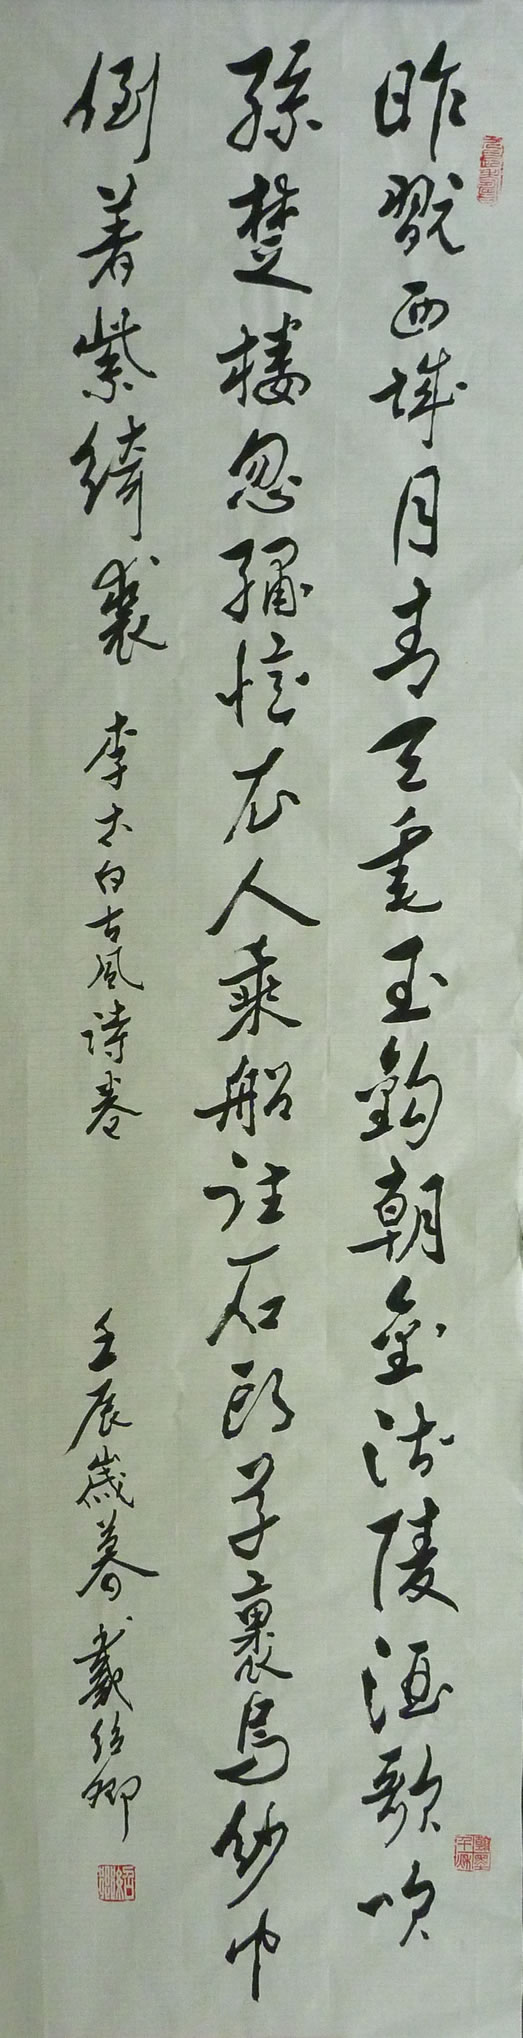 昨翫西城月青天垂玉鈎朝金沽陵酒歌吹
孫楚樓忽繡憶衣人乘船往石頭草裹烏紗巾
倒著紫綺裘 李太白古風詩卷 壬辰歲暮 戴紹卿